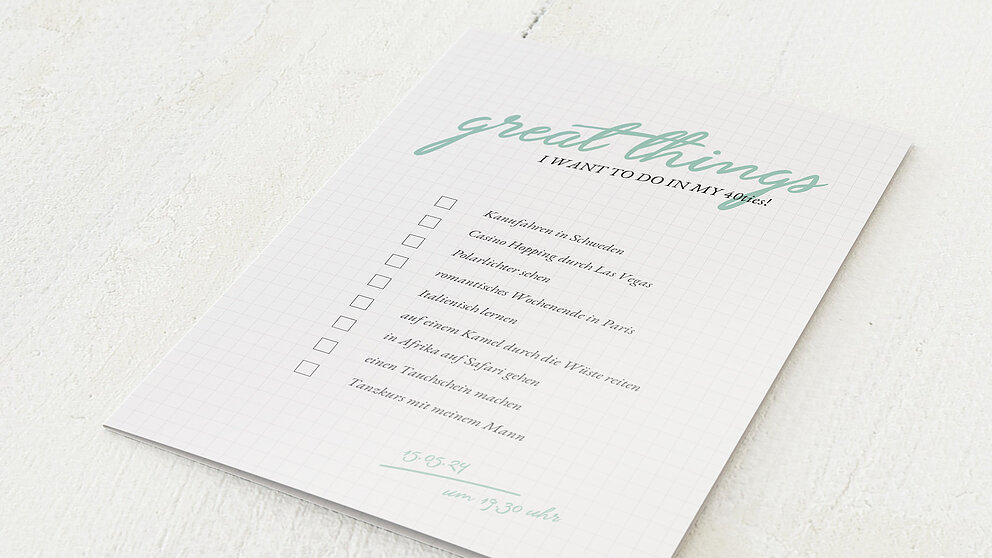 great things
I WANT TO DO IN MY 40ties!
Kanufahren in Schweden
Casino Hopping durch Las Vegas
Polarlichter sehen
romantisches Wochenende in Paris
Italienisch lernen
auf einem Kamel durch die Wüste reiten
in Afrika auf Safari gehen
einen Tauchschein machen
Tanzkurs mit meinem Mann
15.05.24
um 19.30 uhr